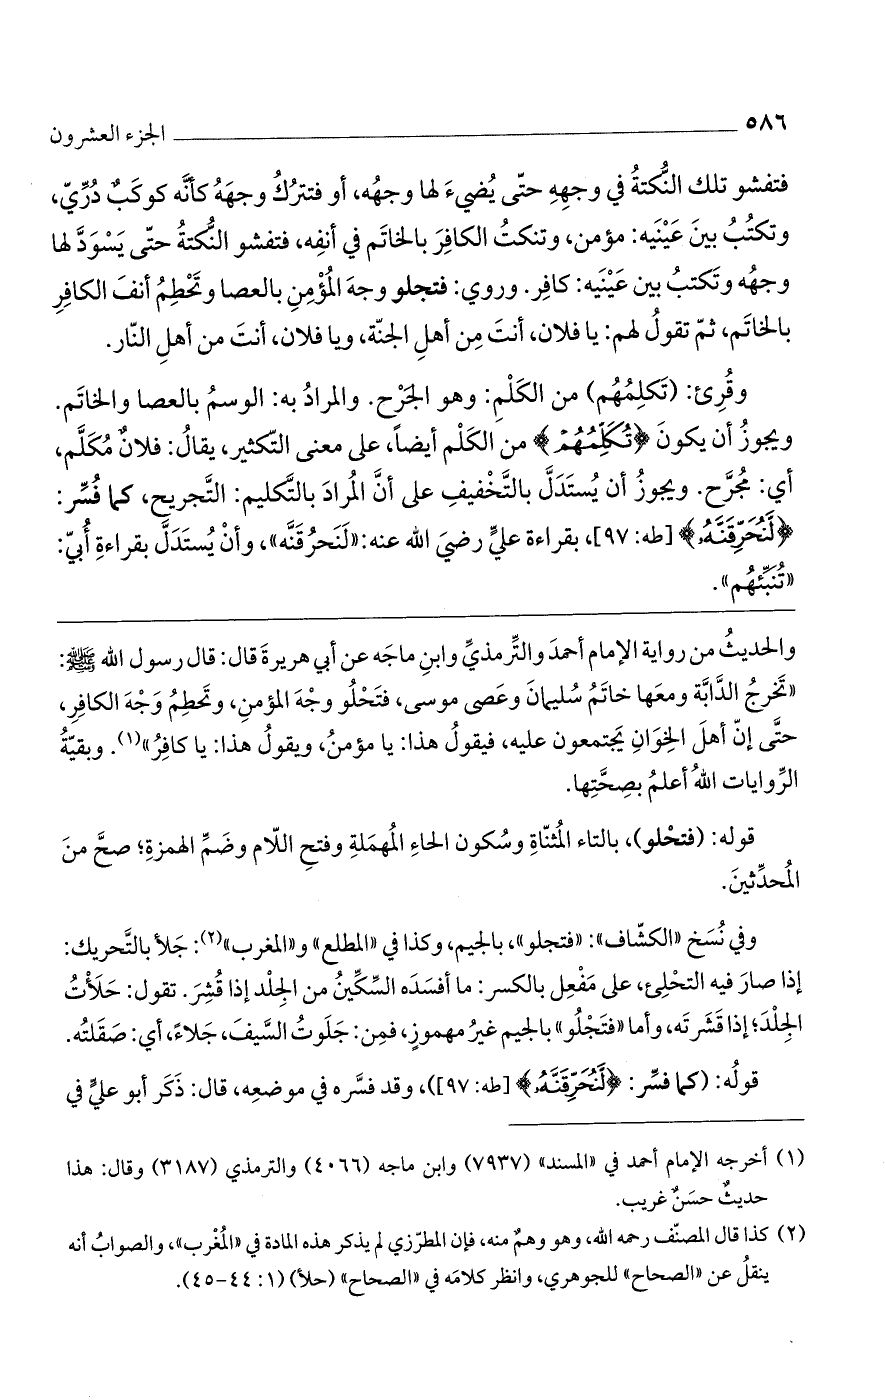 ٥٨٦ الجزء العشرون
فتفشو تلك النُّكتةُ في وجهِهِ حتّى يُضيءَ لها وجهُه، أو فتتركُ وجهَهُ كأنَّه كوكَبٌ دُرِّيّ،
وتكتُبُ بينَ عَيْنَيه: مؤمن، وتنكتُ الكافِرَ بالخاتَم في أنفِه، فتفشو النُّكتةُ حتّى يَسْوَدَّ لها
وجهُه وتَكتبُ بين عَيْنَيه: كافِر. وروي: فتجلو وجهَ المُؤْمِنِ بالعصا وتَحْطِمُ أنفَ الكافِرِ
بالخاتَم، ثمّ تقولُ لهم: يا فلان، أنتَ مِن أهلِ الجنّة، ويا فلان، أنتَ من أهلِ النّار.
وقُرِئ: (تَكلِمُهُم) من الكَلْمِ: وهو الجَرْح. والمرادُ به: الوسمُ بالعصا والخاتَم.
ويجوزُ أن يكونَ ﴿تُكَلِّمُهُمْ﴾ من الكَلْم أيضاً، على معنى التّكثير، يقالُ: فلانٌ مُكَلَّم،
أي: مُجرَّح. ويجوزُ أن يُستَدَلَّ بالتَّخفيفِ على أنَّ المُرادَ بالتَّكليم: التَّجريح، كما فُسِّر:
﴿لَّنُحَرِّقَنَّهُۥ﴾ [طه: ٩٧]، بقراءة عليٍّ رضيَ الله عنه: «لَنَحرُقنَّه»، وأنْ يُستَدَلَّ بقراءةِ أُبيّ:
«تُنَبِّئهُم».
والحديثُ من رواية الإمام أحمدَ والتِّرمذيِّ وابنِ ماجَه عن أبي هريرةَ قال: قال رسول الله ﷺ:
«تَخرجُ الدَّابَّة ومعَها خاتَمُ سُليمانَ وعَصى موسى، فتَحْلُو وجْهَ المؤمنِ، وتَحطِمُ وَجْهَ الكافِرِ،
حتَّى إنّ أهلَ الخِوَانِ يَجتمعون عليه، فيقولُ هذا: يا مؤمنُ، ويقولُ هذا: يا كافِرُ»(١). وبقيّةُ
الرِّوايات اللهُ أعلمُ بصِحَّتِها.
قوله: (فتحْلو)، بالتاء المُثنّاةِ وسُكون الحاءِ المُهمَلةِ وفتحِ اللّام وضَمِّ الهمزةِ؛ صحَّ منَ
المُحدِّثينَ.
وفي نُسَخ «الكشّاف»: «فتجلو»، بالجيم، وكذا في «المطلع» و«المغرب»(٢): حَلأ بالتَّحريك:
إذا صارَ فيه التحْلِئ، على مَفْعِل بالكسر: ما أفسَدَه السِّكِّينُ من الجِلْد إذا قُشِرَ. تقول: حَلَأتُ
الجِلْدَ؛ إذا قَشَرتَه، وأما «فتَجْلُو» بالجيم غيرُ مهموزٍ، فمِن: جَلَوتُ السَّيفَ، جَلاءً، أي: صَقَلتُه.
قولُه: (كما فسِّر: ﴿لَّنُحَرِّقَنَّهُۥ﴾ [طه: ٩٧])، وقد فسَّره في موضعِه، قال: ذَكَر أبو عليٍّ في
(١) أخرجه الإمام أحمد في «المسند» (٧٩٣٧) وابن ماجه (٤٠٦٦) والترمذي (٣١٨٧) وقال: هذا
حديثٌ حسَنٌ غريب.
(٢) كذا قال المصنّف رحمه الله، وهو وهمٌ منه، فإن المطرّزي لم يذكر هذه المادة في «المُغْرب»، والصوابُ أنه
ينقلُ عن «الصحاح» للجوهري، وانظر كلامَه في «الصحاح» (حلأ) (١: ٤٤-٤٥).